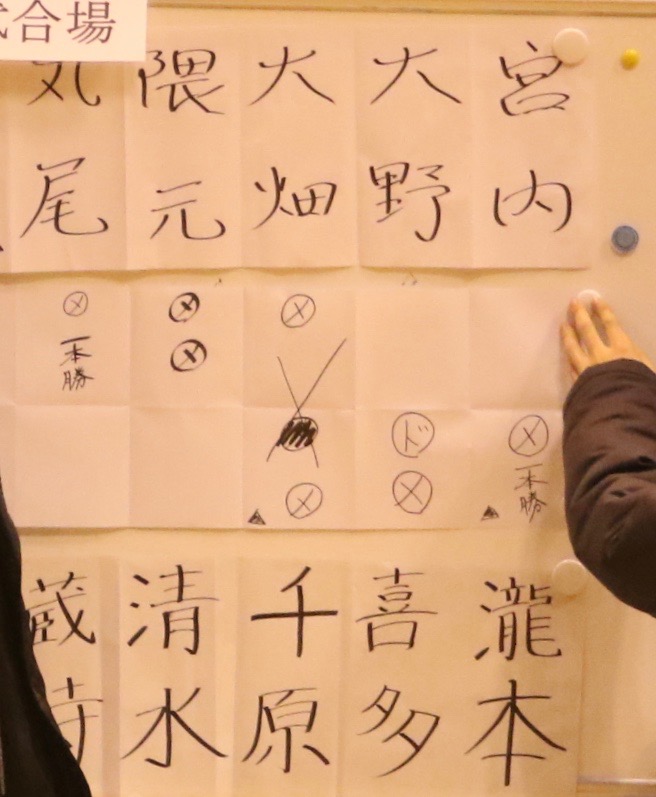 合場
宮内
大野
大畑
隈元
丸尾
ⓧ 一本勝
▲
㋣゙ ⓧ
ⓧ
ⓧ
▲
ⓧ ⓧ
ⓧ 一本勝
瀧本
喜多
千原
清水
蔵